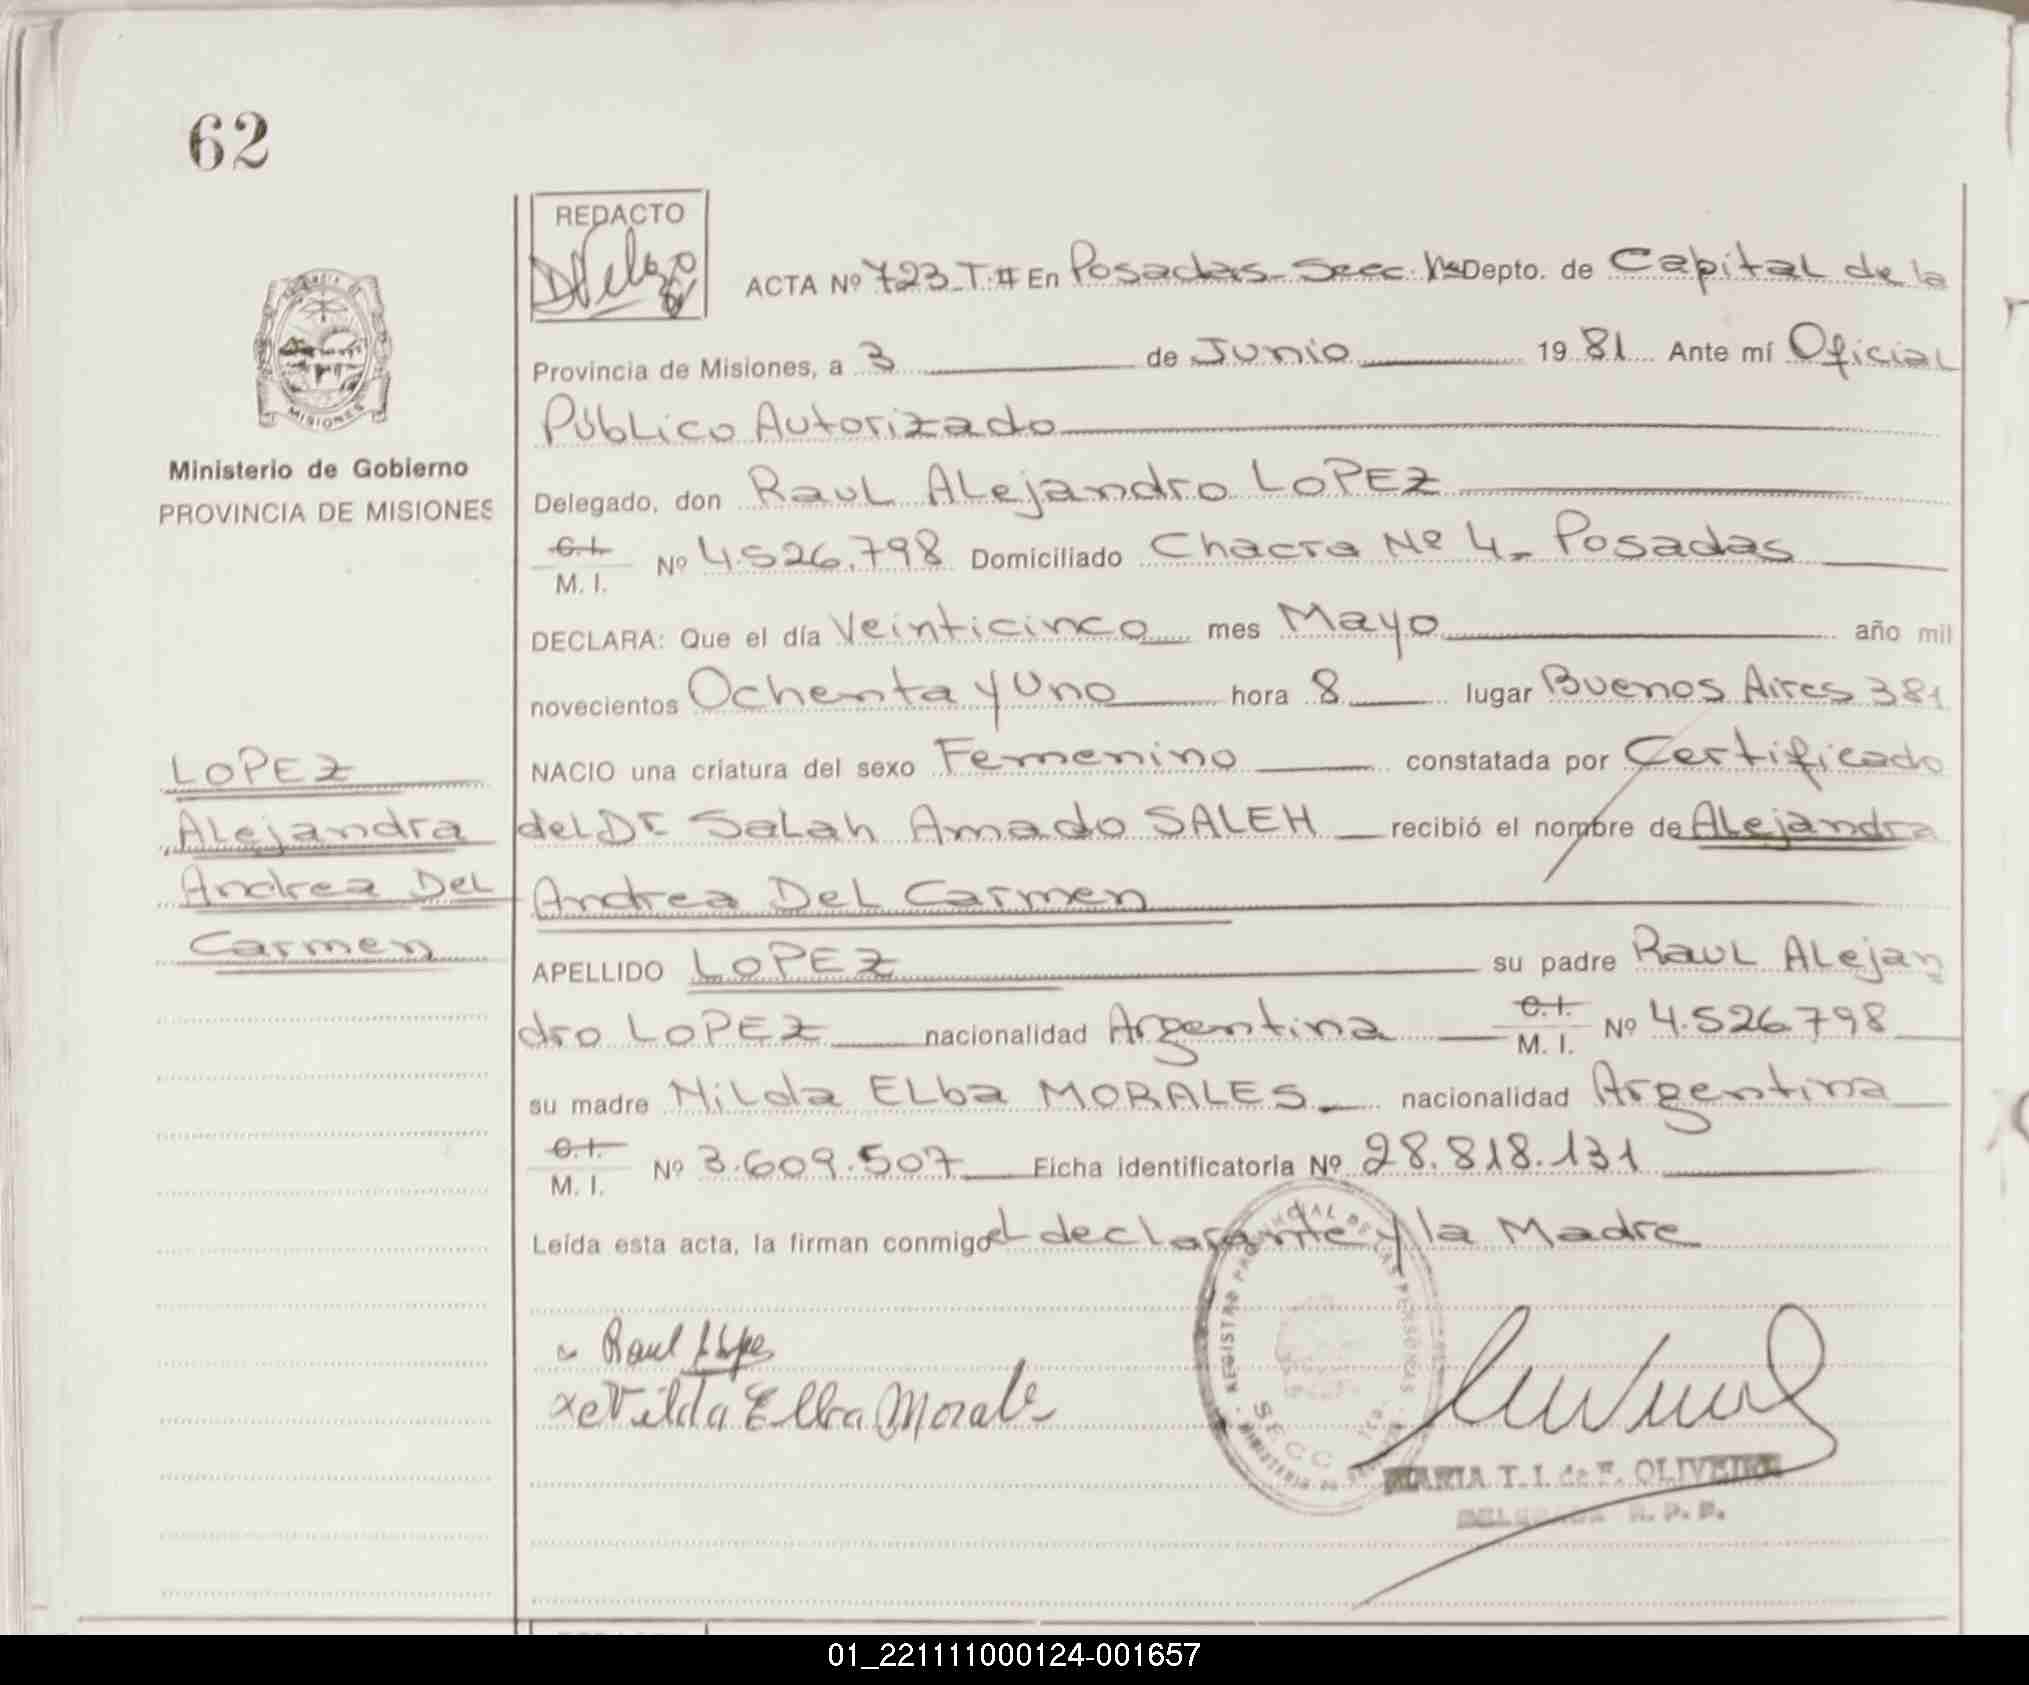 62
REDACTO
ACTA Nº 723 T.# En Posadas- Secc. 1ª Depto. de Capital de la
Provincia de Misiones, a 3 de Junio 19 81 Ante mí Oficial
Público Autorizado
Ministerio de Gobierno
PROVINCIA DE MISIONES
MISIONES
Delegado, don Raul Alejandro LOPEZ
C.I. M. I. Nº 4.526.798 Domiciliado Chacra Nº 4- Posadas
DECLARA: Que el día Veinticinco mes Mayo año mil
novecientos Ochenta y Uno hora 8 lugar Buenos Aires 381
NACIO una criatura del sexo Femenino constatada por Certificado
del Dr. Salah Amado SALEH recibió el nombre de Alejandra
Andrea Del Carmen
LOPEZ
Alejandra
Andrea Del
Carmen
APELLIDO LOPEZ su padre Raul Alejan
dro LOPEZ nacionalidad Argentina C.I. M. I. Nº 4.526.798
su madre Nilda Elba MORALES nacionalidad Argentina
C.I. M. I. Nº 3.609.507 Ficha identificatoria Nº 28.818.131
Leída esta acta, la firman conmigo el declarante y la Madre
Raul Lopez
Nilda Elba Morales
REGISTRO PROVINCIAL DE LAS PERSONAS
SECC. 1ra.
MARIA T. I. de F. OLIVEIRA
DELEGADA R. P. P.
01_221111000124-001657